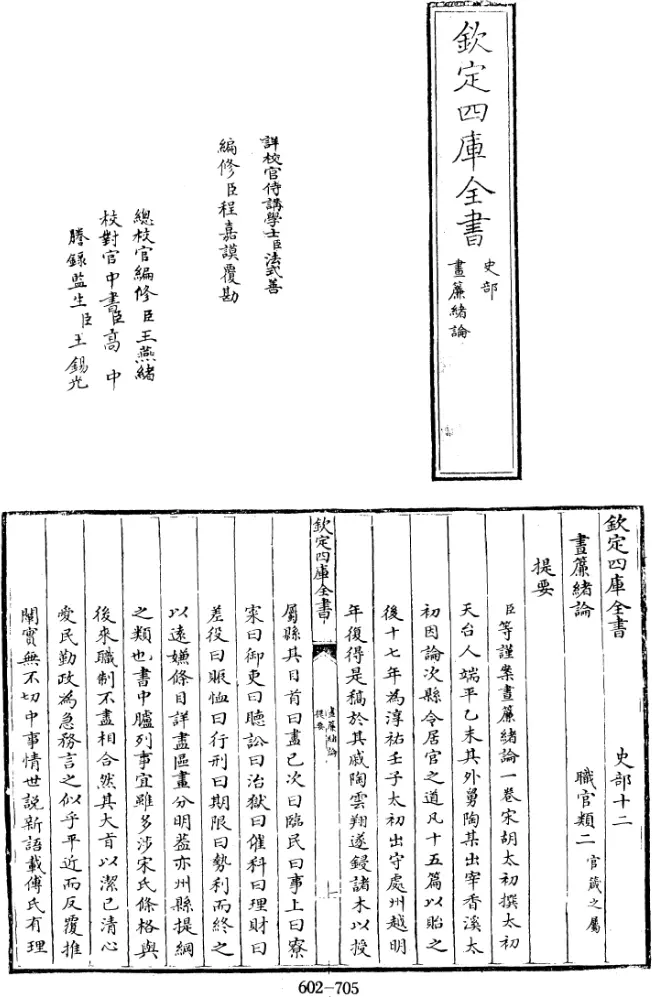 欽定四庫全書
史部
晝簾緒論
詳校官侍講學士臣法式善
編修臣程嘉謨覆勘
總校官編修臣王燕緒
校對官中書臣高中
謄錄監生臣王錫光
欽定四庫全書 史部十二
晝簾緒論 職官類二官箴之屬
提要
臣等謹案晝簾緒論一卷宋胡太初撰太初
天台人端平乙未其外舅陶某出宰香溪太
初因論次縣令居官之道凡十五篇以貽之
後十七年為淳祐壬子太初出守處州越明
年復得是稿於其戚陶雲翔遂鋟諸木以授
欽定四庫全書
晝簾緒論
提要
一
屬縣其目首曰盡己次曰臨民曰事上曰寮
寀曰御吏曰聽訟曰治獄曰催科曰理財曰
差役曰賑恤曰行刑曰期限曰勢利而終之
以遠嫌條目詳盡區畫分明葢亦州縣提綱
之類也書中臚列事宜雖多涉宋氏條格與
後來職制不盡相合然其大旨以潔己清心
愛民勤政為急務言之似乎平近而反覆推
闡實無不切中事情世說新語載傅氏有理
602-705